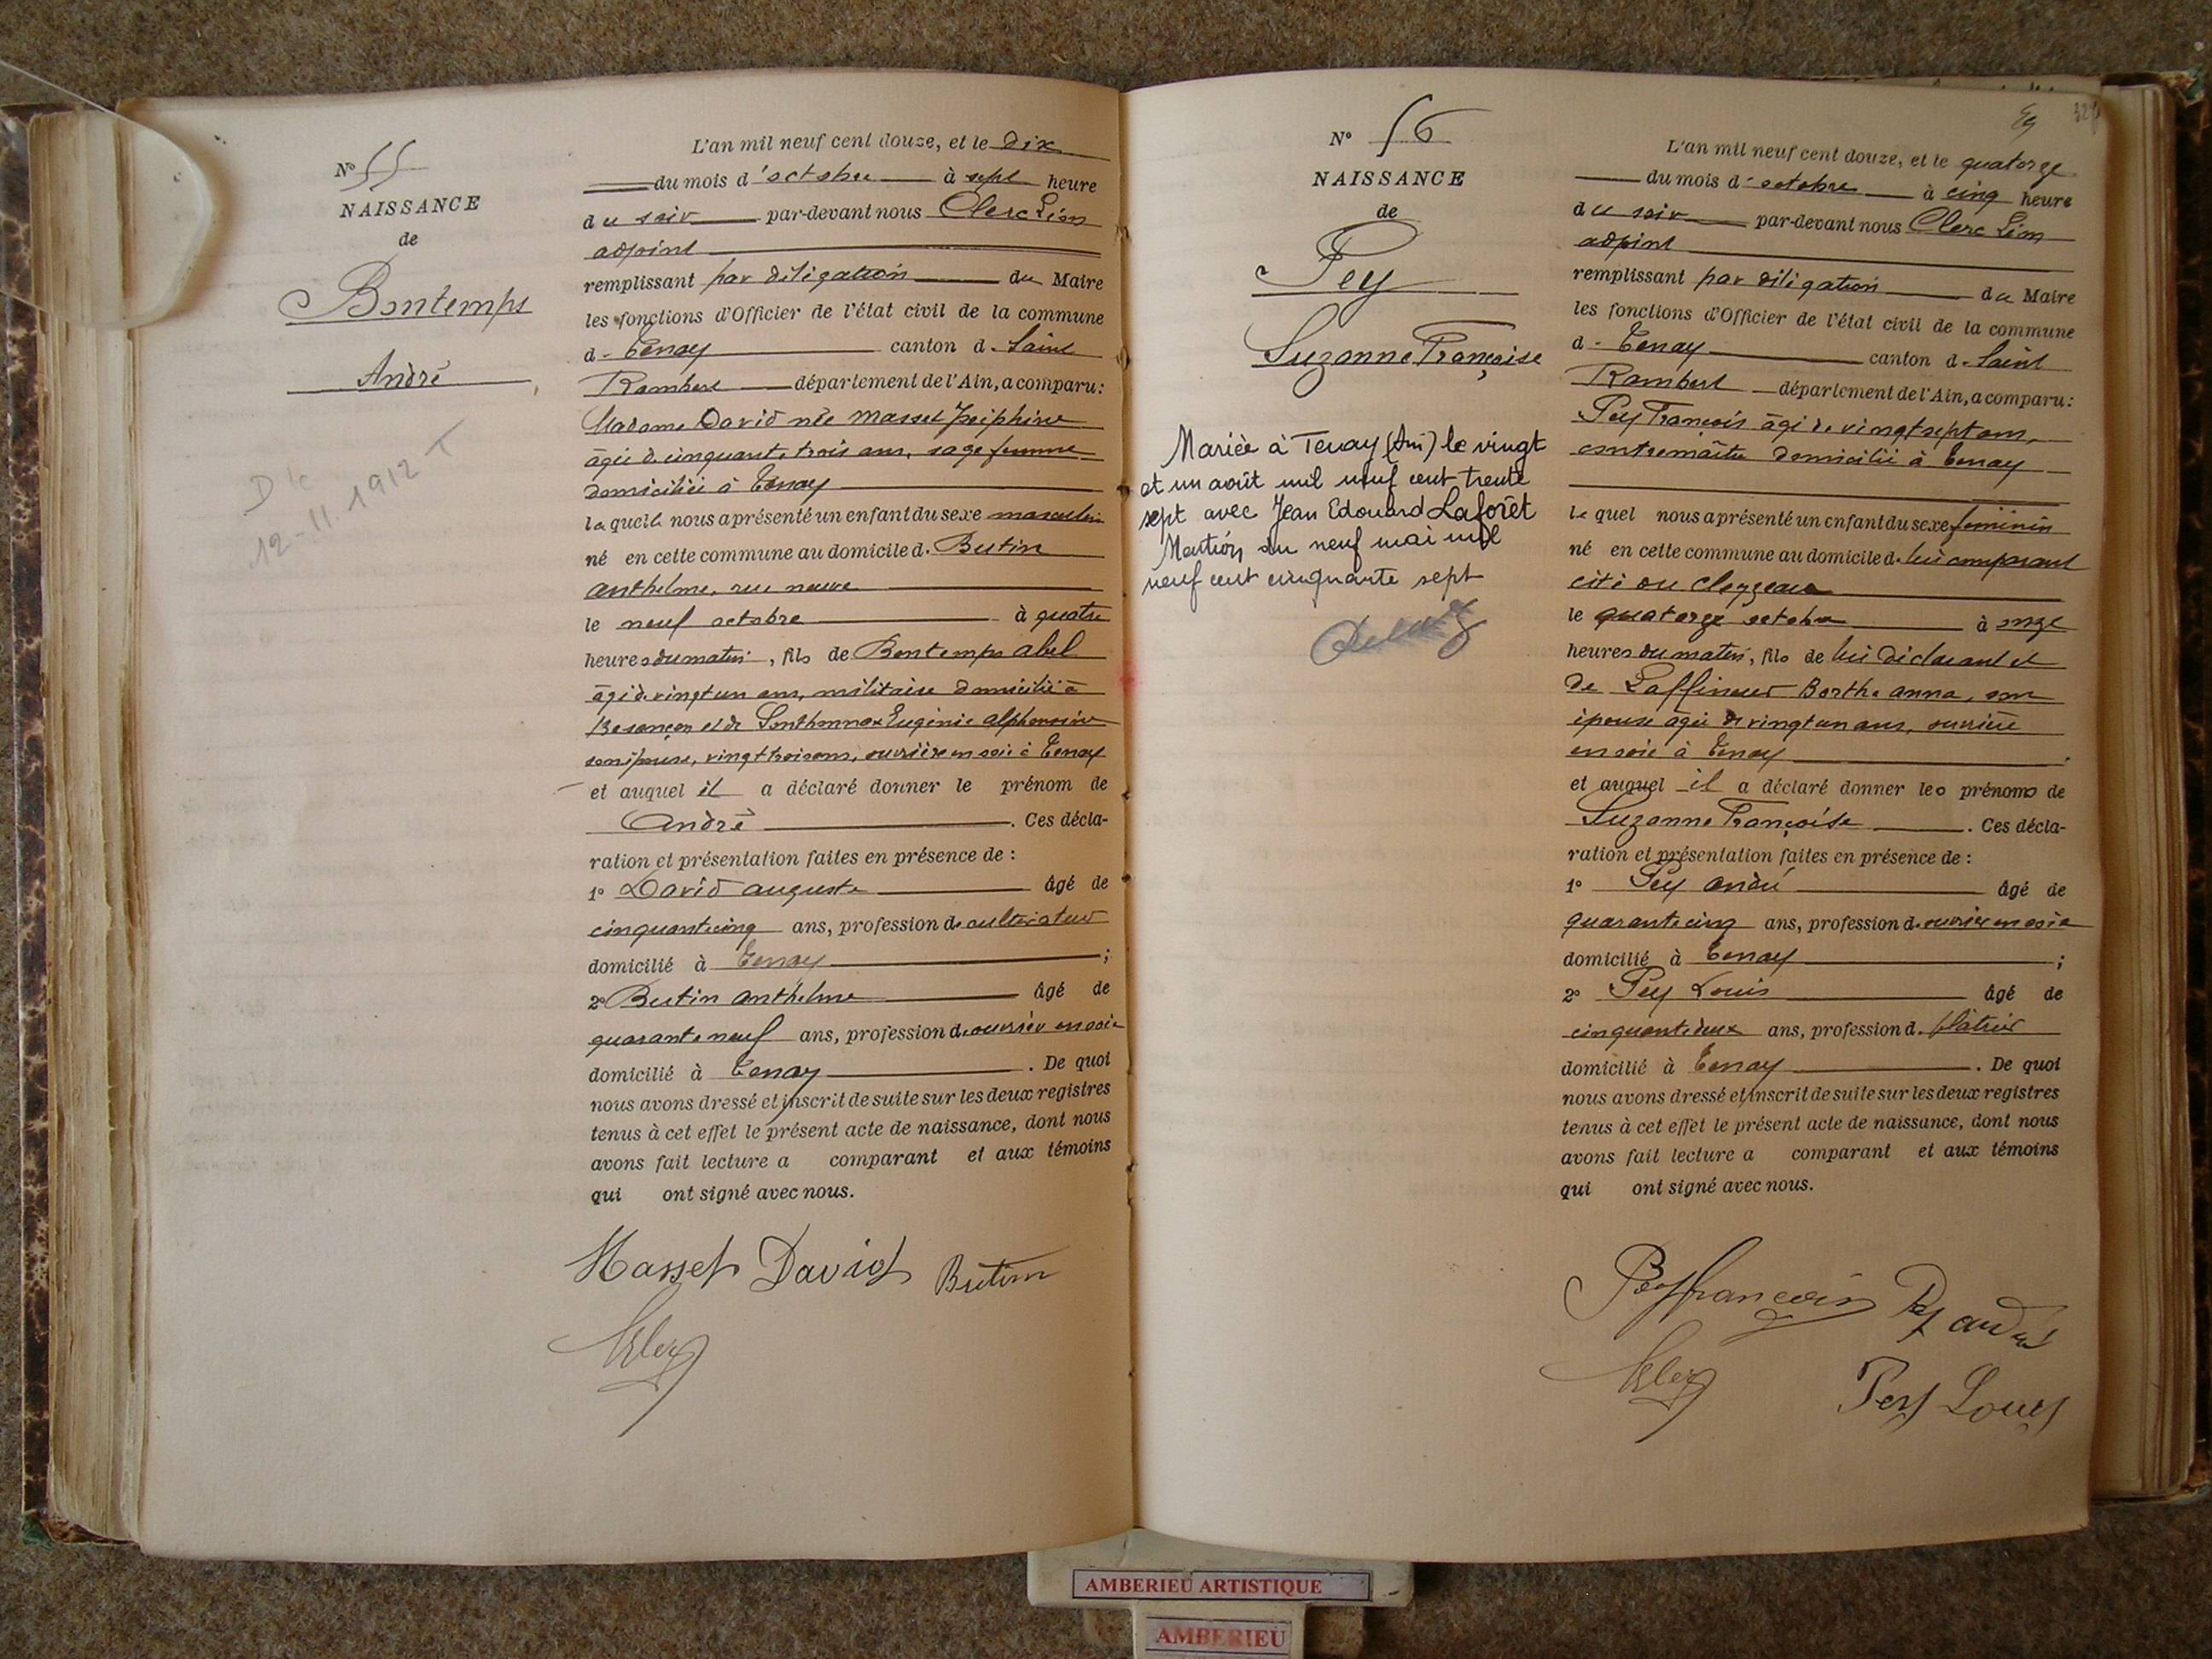 N° 55
NAISSANCE
de
Bontemps
André
D
12-11 1912
L'an mil neuf cent douze, et le dix
du mois d'octobre à sept heure
du soir par-devant nous Clerc Léon
adjoint
remplissant par délégation du Maire
les fonctions d'Officier de l'état civil de la commune
d. Tenay canton d. Saint
Rambert département de l'Ain, a comparu:
Madame David née Masset Joséphine
âgée de cinquante trois ans, sage femme
domiciliée à Tenay
laquelle nous a présenté un enfant du sexe masculin
né en cette commune au domicile d. Butin
anthelme, rue neuve
le neuf octobre à quatre
heures du matin, fils de Bontemps abel
âgé de vingt un ans, militaire domicilié à
Besançon et de Sonthonnax Eugénie alphonsine
son épouse, vingt trois ans, ouvrière en soie à Tenay
et auquel il a déclaré donner le prénom de
André. Ces décla-
ration et présentation faites en présence de :
1° David auguste âgé de
cinquante cinq ans, profession de cultivateur
domicilié à Tenay ;
2° Butin anthelme âgé de
quarante neuf ans, profession de ouvrier en soie
domicilié à Tenay. De quoi
nous avons dressé et inscrit de suite sur les deux registres
tenus à cet effet le présent acte de naissance, dont nous
avons fait lecture a comparant et aux témoins
qui ont signé avec nous.
Masset David Butin
Clerc
59
N° 56
NAISSANCE
de
Pey
Suzanne Françoise
Mariée à Tenay (Ain) le vingt
et un août mil neuf cent trente
sept avec Jean Edouard Laforêt
Mention du neuf mai mil
neuf cent cinquante sept
L'an mil neuf cent douze, et le quatorze
du mois d'octobre à cinq heure
du soir par-devant nous Clerc Léon
adjoint
remplissant par délégation du Maire
les fonctions d'Officier de l'état civil de la commune
d. Tenay canton d. Saint
Rambert département de l'Ain, a comparu:
Pey François âgé de vingt sept ans,
contremaître domicilié à Tenay
lequel nous a présenté un enfant du sexe féminin
né en cette commune au domicile d. lui comparant
cité du Cleyzeau
le quatorze octobre à onze
heures du matin, fils de lui déclarant et
de Laffineur Berthe anna, son
épouse âgée de vingt un ans, ouvrière
en soie à Tenay
et auquel il a déclaré donner les prénoms de
Suzanne Françoise. Ces décla-
ration et présentation faites en présence de :
1° Pey André âgé de
quarante cinq ans, profession d. ouvrier en soie
domicilié à Tenay ;
2° Pey Louis âgé de
cinquante deux ans, profession d. plâtrier
domicilié à Tenay. De quoi
nous avons dressé et inscrit de suite sur les deux registres
tenus à cet effet le présent acte de naissance, dont nous
avons fait lecture a comparant et aux témoins
qui ont signé avec nous.
Pey françois Pey andré
Clerc Pey Louis
AMBERIEU ARTISTIQUE
AMBERIEU